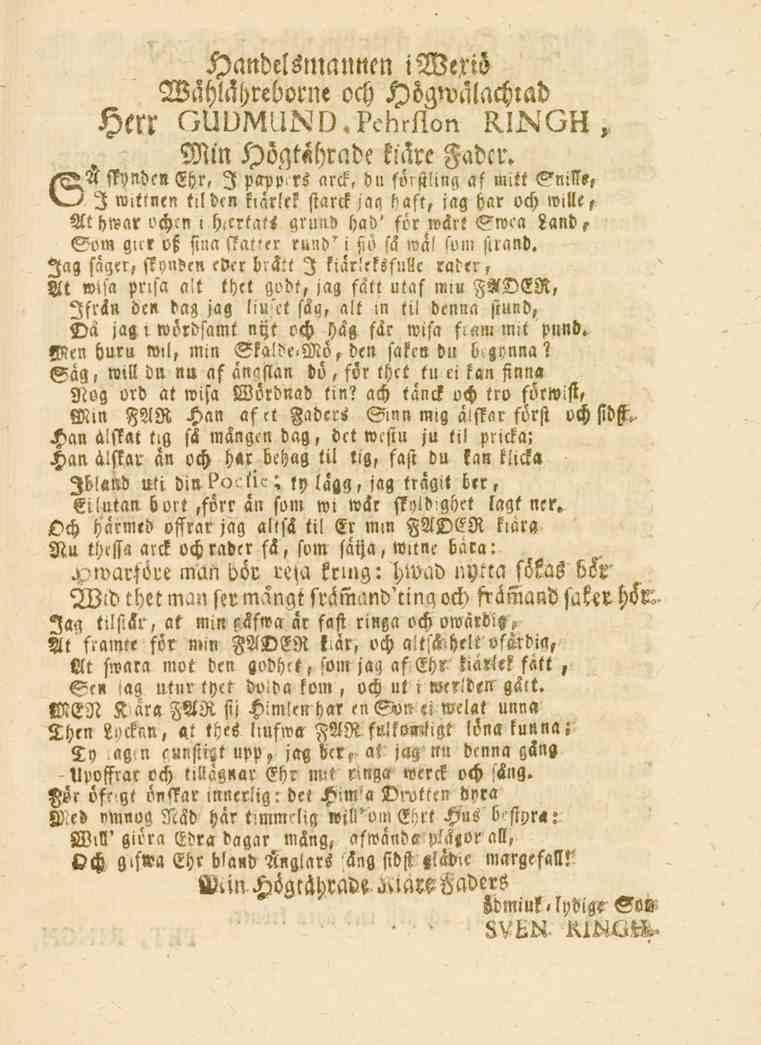 Handelsmannen i Wexiö
Wählähreborne och Högwälachtad
Herr GUDMUND Pehrsson RINGH,
Min Högtährade kiäre Fader.
SÅ skynden Ehr, I pappers arck, du förstling af mitt Snille,
I wittnen til den kiärlek starck jag haft, jag har och wille,
At hwar ochen i hiertats grund had' för wårt Swea Land,
Som gier oß sina skatter rund' i siö så wäl som strand.
Jag säger, skynden eder brått I kiärleksfulle rader,
At wisa prisa alt thet godt, jag fått utaf min FADER,
Ifrån den dag jag liuset såg, alt in til denna stund,
Då jag i wördsamt nijt och håg får wisa fram mit pund.
Men huru wil, min Skalde-Mö, den saken du begynna?
Säg, will du nu af ängslan dö, för thet tu ei kan finna
Nog ord at wisa Wördnad tin? ach tänck och tro förwist,
Min FAR Han af et Faders Sinn mig älskar först och sidst.
Han älskat tig så mången dag, det westu ju til pricka;
Han älskar än och har behag til tig, fast du kan klicka
Ibland uti din Poesie; ty lägg, jag trägit ber,
Ei lutan bort, förr än som wi wår skyldighet lagt ner.
Och härmed offrar jag altså til Er min FADER kiära
Nu thessa arck och rader få, som säija, witne bära:
Hwarföre man bör resa kring: hwad nytta sökas bör
Wid thet man ser mångt främand' ting och främand saker hör.
Jag tilstår, at min gåfwa är fast ringa och owärdig,
At framte för min FADER kiär, och altså helt ofärdig,
At swara mot den godhet, som jag af Ehr kiärlek fått,
Sen jag utur thet dolda kom, och ut i werlden gått.
MEN Kiära FAR sij Himlen har en Son ei welat unna
Then Lyckan, at thes liufwa FAR fulkomligt löna kunna;
Ty tagen gunstigt upp, jag ber, at jag nu denna gång
Upoffrar och tillägnar Ehr mit ringa werck och sång.
För öfrigt önskar innerlig: det Himla Drotten dyra
Med ymnog Nåd här timmelig will' om Ehrt Hus bestyra:
Will' giöra Edra dagar mång, afwända plågor all,
Och gifwa Ehr bland Änglars sång sidst glädie margefall!
Min Högtährade Kiäre Faders
ödmiuk-lydige Son
SVEN RINGH.